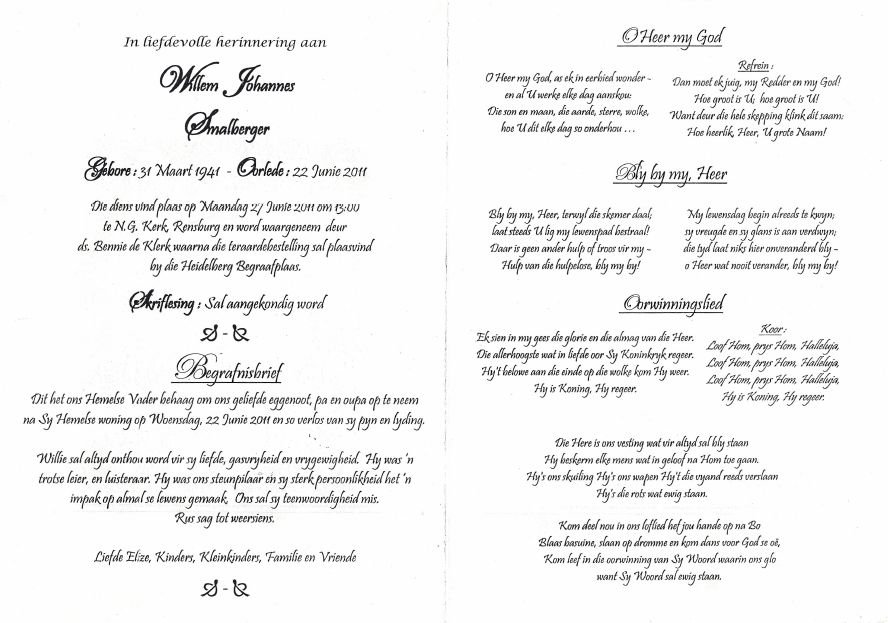 In liefdevolle herinnering aan
Willem Johannes
Smalberger
Gebore : 31 Maart 1941 - Oorlede : 22 Junie 2011
Die diens vind plaas op Maandag 27 Junie 2011 om 13:00
te N.G. Kerk, Rensburg en word waargeneem deur
ds. Bennie de Klerk waarna die teraardebestelling sal plaasvind
by die Heidelberg Begraafplaas.
Skriflesing : Sal aangekondig word
Begrafnisbrief
Dit het ons Hemelse Vader behaag om ons geliefde eggenoot, pa en oupa op te neem
na Sy Hemelse woning op Woensdag, 22 Junie 2011 en so verlos van sy pyn en lyding.
Willie sal altyd onthou word vir sy liefde, gasvryheid en vrygewigheid. Hy was 'n
trotse leier, en luisteraar. Hy was ons steunpilaar en sy sterk persoonlikheid het 'n
impak op almal se lewens gemaak. Ons sal sy teenwoordigheid mis.
Rus sag tot weersiens.
Liefde Elize, Kinders, Kleinkinders, Familie en Vriende
O Heer my God
O Heer my God, as ek in eerbied wonder ~
en al U werke elke dag aanskou:
Die son en maan, die aarde, sterre, wolke,
hoe U dit elke dag so onderhou ...
Refrein :
Dan moet ek juig, my Redder en my God!
Hoe groot is U, hoe groot is U!
Want deur die hele skepping klink dit saam:
Hoe heerlik, Heer, U grote Naam!
Bly by my, Heer
Bly by my, Heer, terwyl die skemer daal;
laat steeds U lig my lewenspad bestraal!
Daar is geen ander hulp of troos vir my ~
Hulp van die hulpelose, bly my by!
My lewensdag begin alreeds te kwyn;
sy vreugde en sy glans is aan verdwyn;
die tyd laat niks hier onveranderd bly ~
o Heer wat nooit verander, bly my by!
Oorwinningslied
Ek sien in my gees die glorie en die almag van die Heer.
Die allerhoogste wat in liefde oor Sy Koninkryk regeer.
Hy't belowe aan die einde op die wolke kom Hy weer.
Hy is Koning, Hy regeer.
Koor :
Loof Hom, prys Hom, Halleluja,
Loof Hom, prys Hom, Halleluja,
Loof Hom, prys Hom, Halleluja,
Hy is Koning, Hy regeer.
Die Here is ons vesting wat vir altyd sal bly staan
Hy beskerm elke mens wat in geloof na Hom toe gaan.
Hy's ons skuiling Hy's ons wapen Hy't die vyand reeds verslaan
Hy's die rots wat ewig staan.
Kom deel nou in ons loflied hef jou hande op na Bo
Blaas basuine, slaan op dromme en kom dans voor God se oë,
Kom leef in die oorwinning van Sy Woord waarin ons glo
want Sy Woord sal ewig staan.